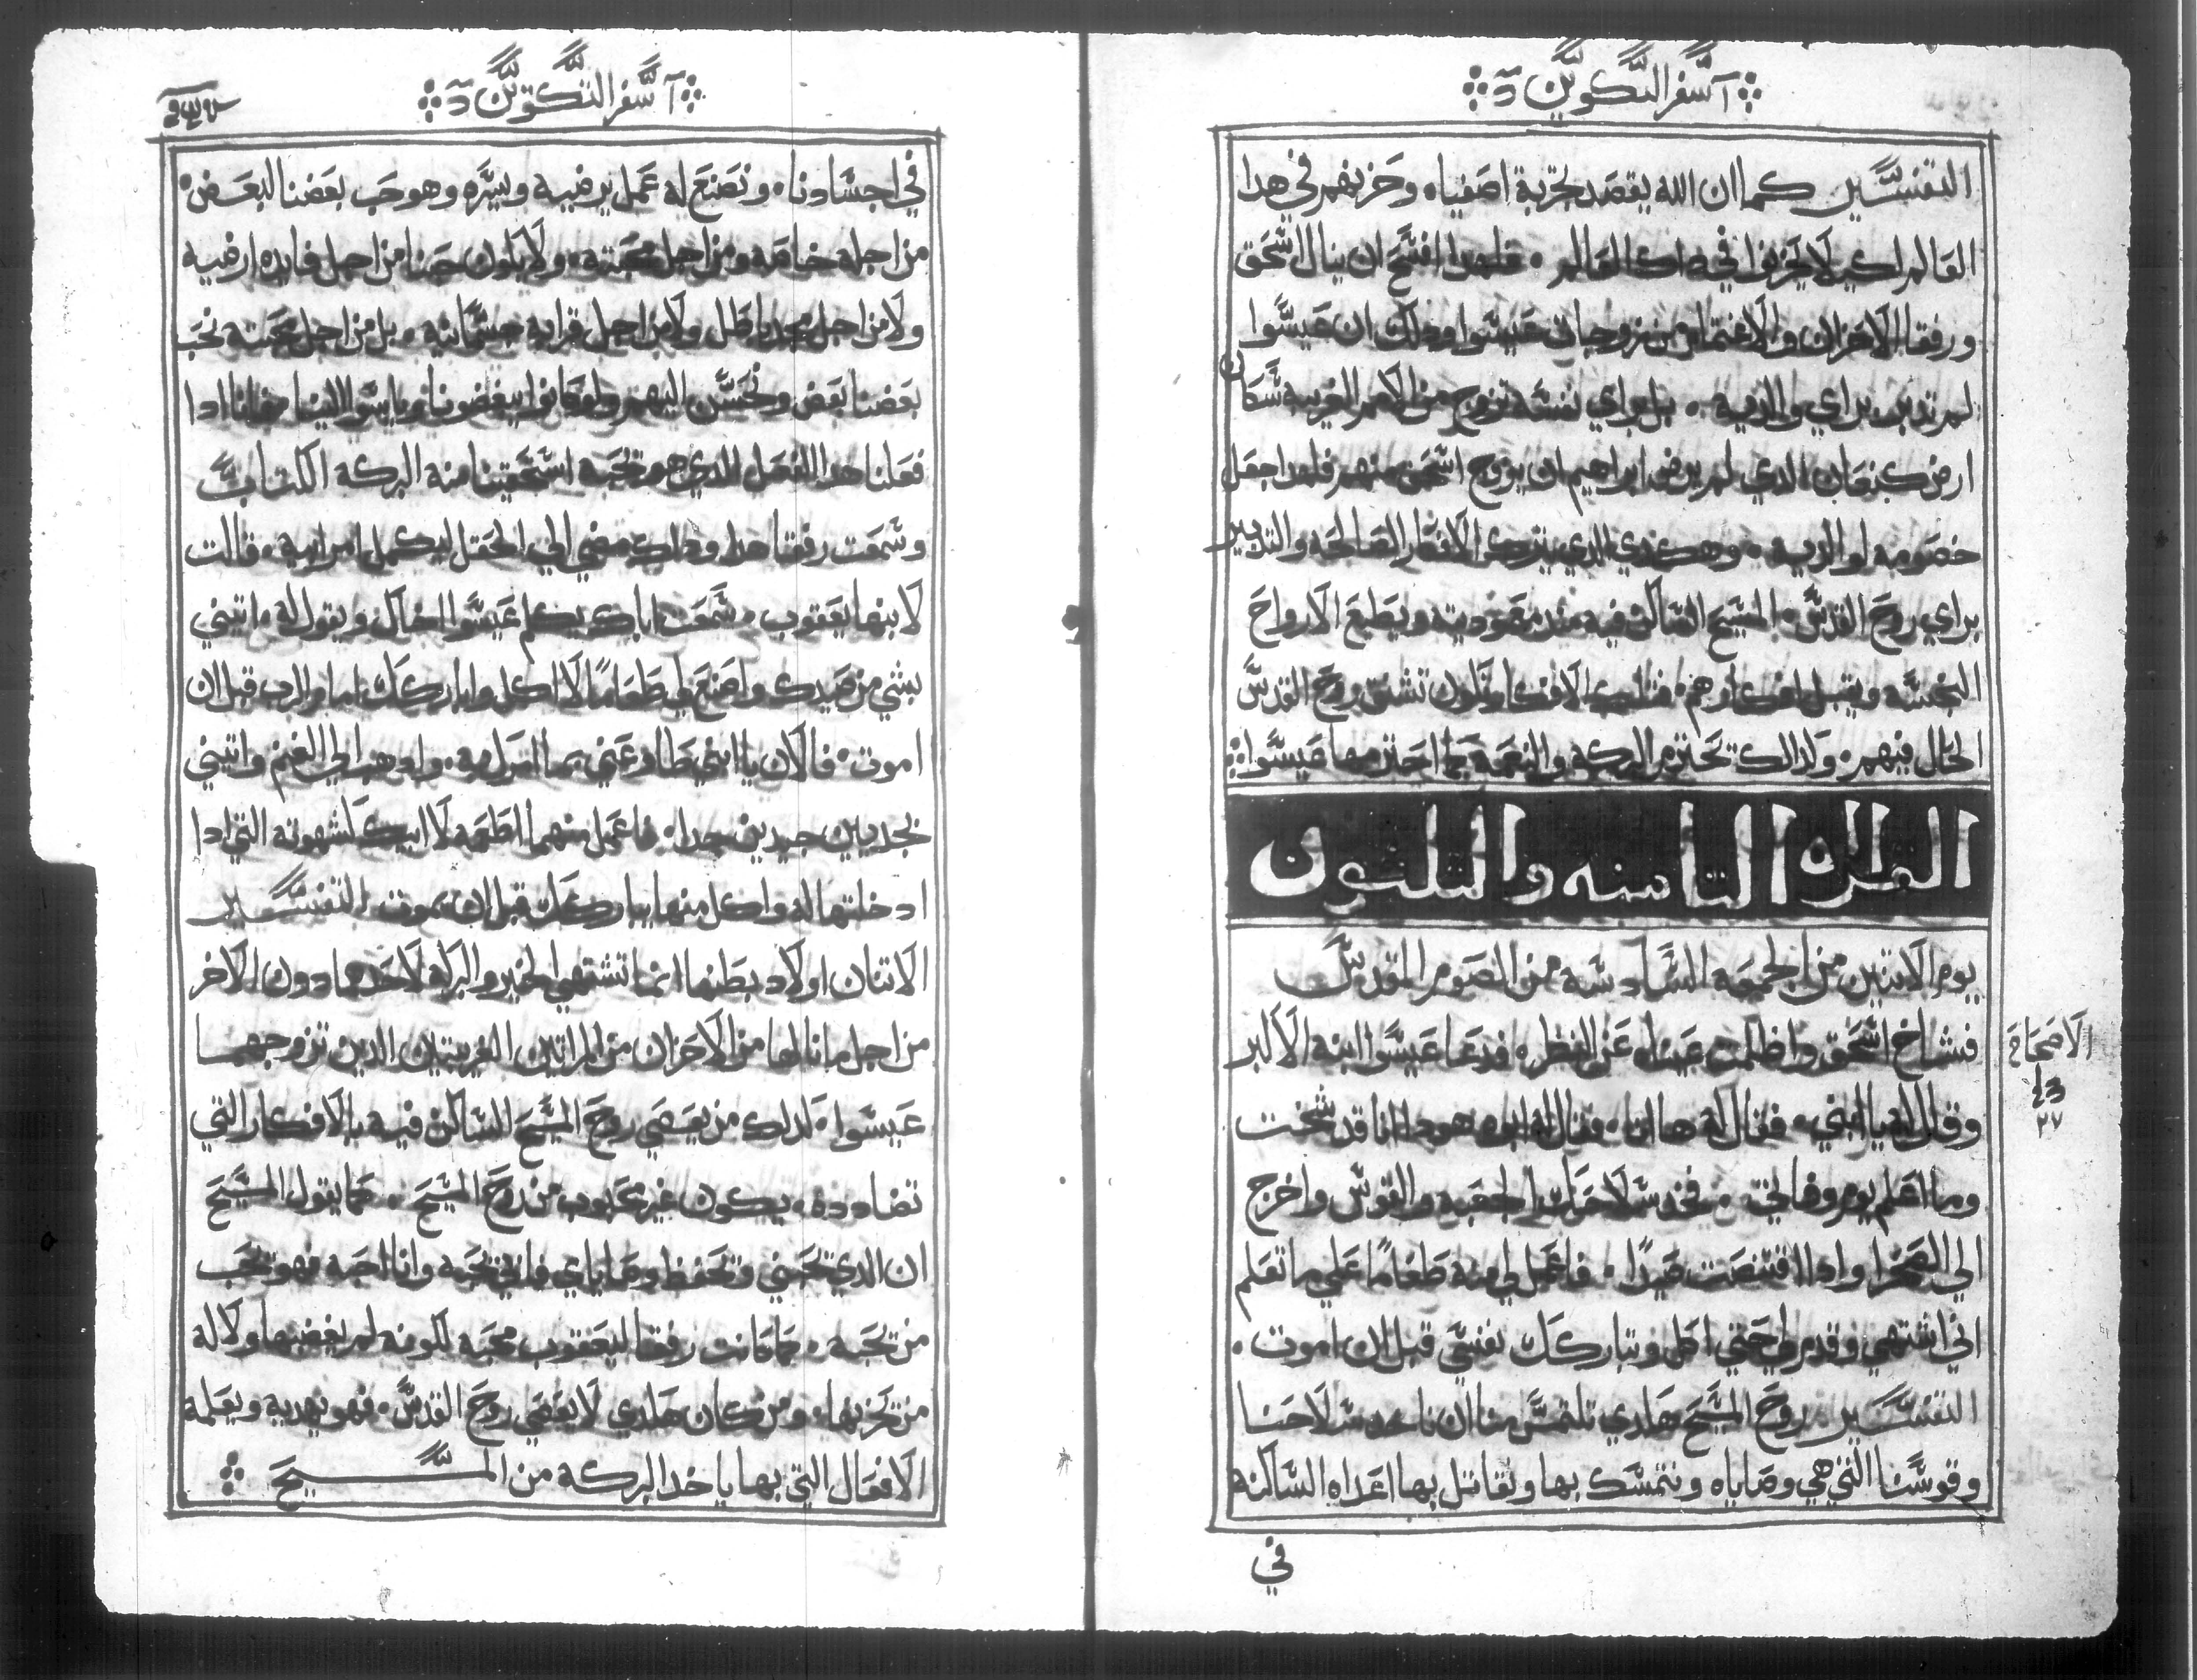 آ سفر التكوين
التفسير كما ان الله يقصد تجربة اصفياه وحزنهم في هدا
العالم لكي لا يحزنوا في داك العالم ۰ فلهدا افسح ان ينال اسحق
ورفقا الاحزان والاغتمام من زوجات عيسوا ودلك ان عيسوا
لم يتدبر براي والديه ۰ بل براي نفسه تزوج من الامم الغريبه سكان
ارض كنعان الدي لم يرضي ابراهيم ان يزوج اسحق منهم فلهدا جعل
خصومه لوالديه ۰ وهكدي الدي يترك الافكار الصالحه والتدبير
براي روح القدس ۰ المسيح الساكن فيه مند معموديته ويطيع الارواح
النجسه ويقبل افكارهم فتلك الافكار تكون تشق روح القدس
الحال فيهم ۰ ولدالك تحترم البركه والنعمه كما احترمها عيسوا
القراه التامنه والتلتون
يوم الاتنين من الجمعه السادسه من الصوم المقدس
الاصحاح
٢٧
فشاخ اسحق واظلمت عيناه عن النظر ۰ فدعا عيسوا ابنه الاكبر
وقال له يا ابني ۰ فقال له هاانا ۰ فقال له ابوه هودا انا قد شخت
وما اعلم يوم وفاتي ۰ فخد سلاحك الجعبه والقوس واخرج
الي الصحرا وادا اقتنصت صيدًا ۰ فاعمل لي منه طعامًا علي ما تعلم
اني اشتهي وقدم لي حتي اكل وتباركك نفسي قبل ان اموت ۰
التفسير روح المسيح هكدي تلتمس منا ان ناخد سلاحنا
وقوسنا التي هي وصاياه ونتمسك بها ونقاتل بها اعداه الساكنه
في
آ سفر التكوين
في اجسادنا ۰ ونصنع له عمل يرضيه ويسره وهو حب بعضنا لبعض ۰
من اجله خاصه ومن اجل محبته ۰ ولا يكون حبنا من اجل فايده ارضيه
ولا من اجل مجد باطل ولا من اجل قرابه جسمانيه ۰ بل من اجل محبته نحب
بعضنا بعض ونحسن اليهم ولو كانوا يبغضونا وياسوا الينا فاننا ادا
فعلنا هدا الفعل الدي هو يحبه استحقينا منه البركه الكتاب
وسمعت رفقا هدا وداك مضي الي الحقل ليكمل امر ابيه ۰ قالت
لابنها يعقوب ۰ سمعت اباك يكلم عيسوا اخاك ويقول له ۰ اتيني
بشي من صيدك واصنع لي طعامًا لااكل واباركك امام الرب قبل ان
اموت ۰ فالان يا ابني طاوعني بما اقول لك ۰ وادهب الي الغنم واتيني
بجديين جيدين جدا ۰ فاعمل منهما اطعمه لابيك كشهوته التي ادا
ادخلتها له واكل منها يباركك قبل ان يموت التفسير
الاتنان اولاد بطنها انما تشتهي الخير والبركه لاحدهما دون الاخر
من اجل ما نالها من الاحزان من المراتين الغريبتين الدين تزوجهما
عيسوا ۰ لدلك من يعصي روح المسيح الساكن فيه بالافكار التي
تضادده ۰ يكون غير محبوب من روح المسيح ۰ كما يقول المسيح
ان الدي يحبني ويحفظ وصاياي فابي يحبه وانا احبه فهو يحب
من يحبه ۰ كما كانت رفقا ليعقوب محبه لكونه لم يغضبها ولا له
من تحزنها ۰ ومن كان هكدي لا يعصي روح القدس ۰ فهو يهديه ويعلمه
الافعال التي بها ياخد البركه من المسيح